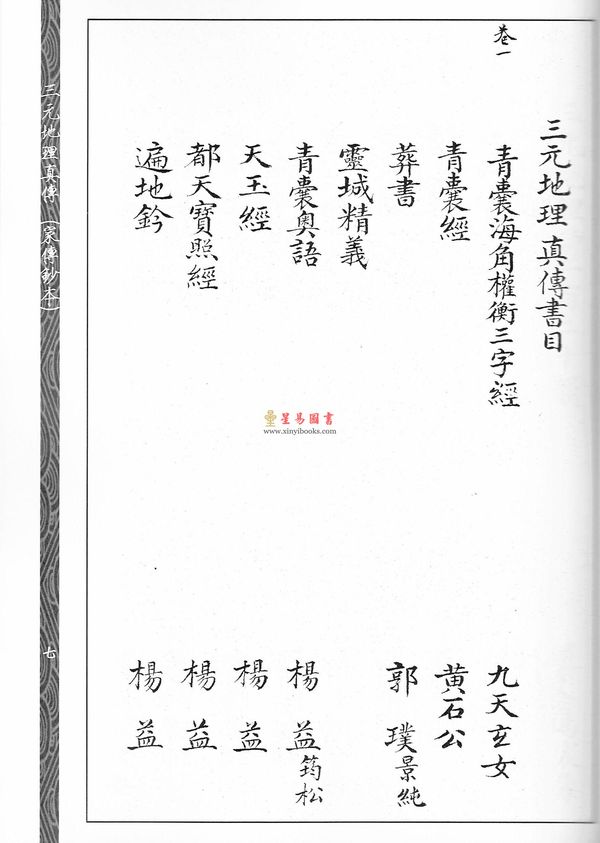 三元地理真傳書目
卷一
青囊海角權衡三字經 九天玄女
青囊經 黃石公
葬書 郭璞景純
靈城精義
青囊奧語 楊益筠松
天玉經 楊益
都天寶照經 楊益
遍地鈐 楊益
星易圖書
www.xinyibooks.com
三元地理真傳(家傳鈔本)
七